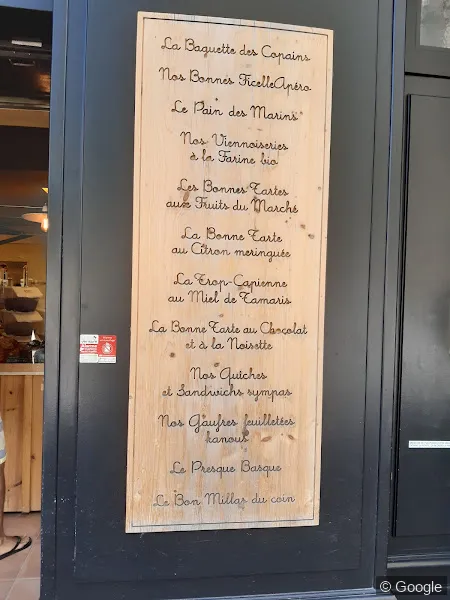 La Baguette des Copains
Nos Bonnes Ficelle Apéro
Le Pain des Marins
Nos Viennoiseries
à la Farine bio
Les Bonnes Tartes
aux Fruits du Marché
La Bonne Tarte
au Citron meringuée
La Trop-Capienne
au Miel de Tamaris
La Bonne Tarte au Chocolat
et à la Noisette
Nos Quiches
et Sandwichs sympas
Nos Gaufres feuilletées
kanous
Le Presque Basque
Le Bon Millas du coin
© Google